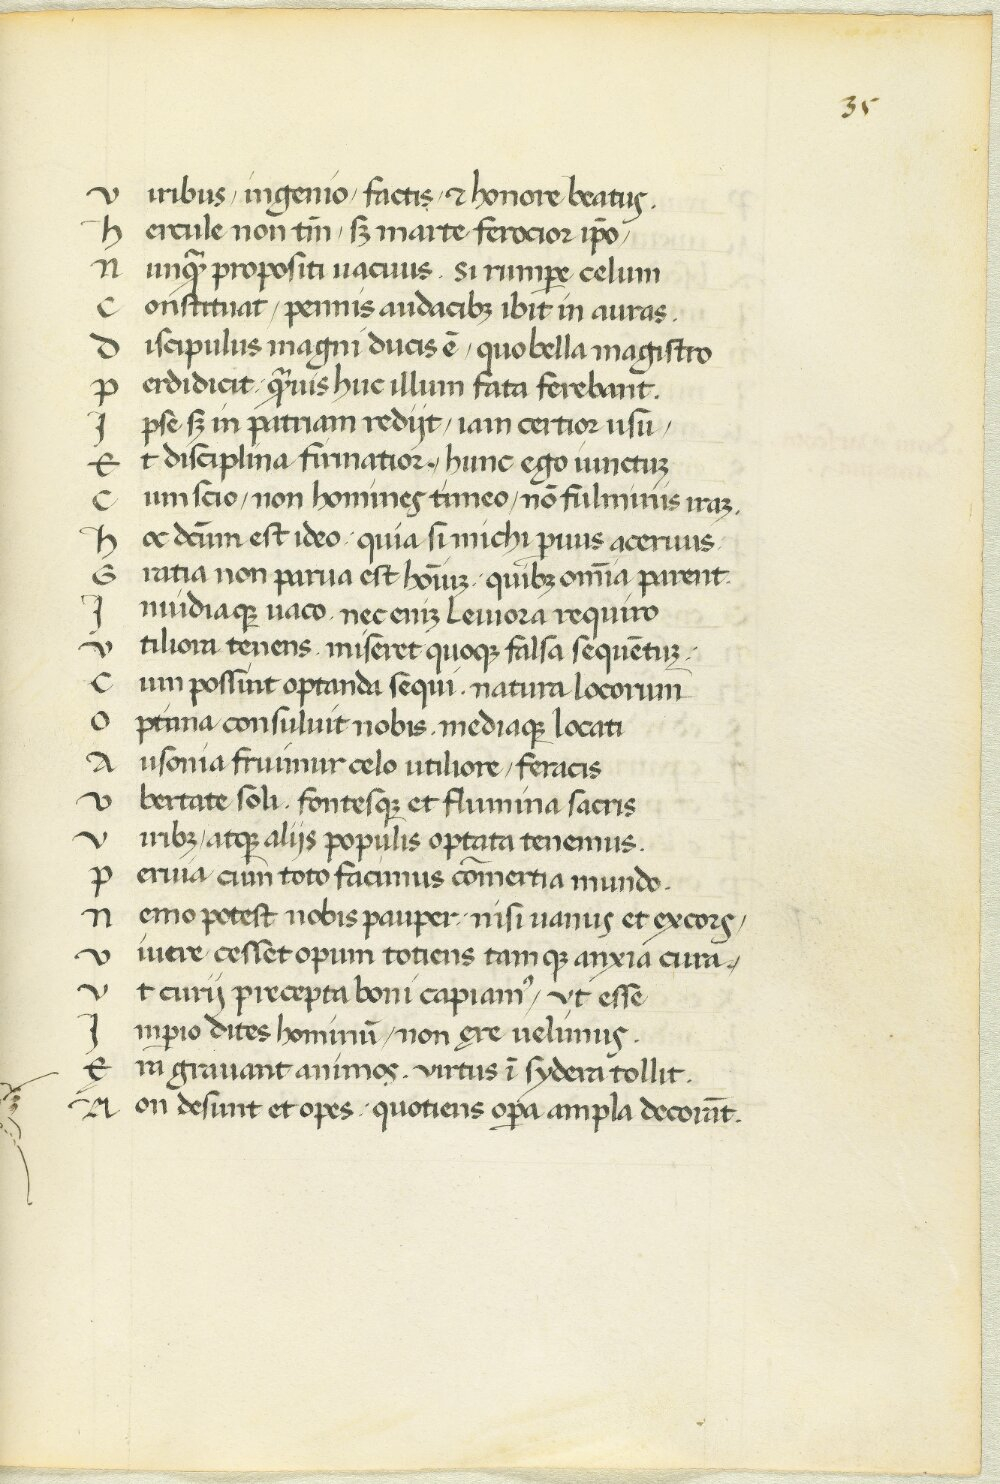 35
Viribus / ingenio / factis / ⁊ honore beatus.
hercule non tm̄ / sꝫ marte ferocior ip̄o /
Nunqᷓ propositi uacuus. Si rumꝑe celum
Constituat / pennis audacibꝫ ibit in auras.
Discipulus magni ducis ē / quo bella magistro
perdidicit. qᷓuis huc illum fata ferebant.
Ipse sꝫ in patriam redijt / iam certior usu /
Et disciplina firmatior. / hunc ego iunctuꝫ
Cum scio / non homines timeo / nō fulminis iraꝫ.
hoc dc̄um est ideo. quia si michi ꝑuus aceruus
Gratia non parua est hoīuꝫ. quibꝫ om̄ia parent.
Inuidiaqꝫ uaco. nec eniꝫ leuiora requiro
vtiliora tenens. miseret quoqꝫ falsa sequētuꝫ.
Cum possint optanda sequi. natura locorum
Optima consuluit nobis. mediaqꝫ locati
Ausonia fruimur celo utiliore / feracis
vbertate soli. fontesqꝫ et flumina sacris
Viribꝫ / atqꝫ alijs populis optata tenemus.
peruia cum toto facimus cōmertia mundo.
nemo potest nobis pauper. nisi uanus et excors /
viuere. cesset opum totiens tamqꝫ anxia cura. /
Vt curij precepta boni capiamꝰ / Vt esse
Inꝑio dites hominū / non ęre uelimus.
Era grauant animos. virtus ī sydera tollit.
Non desunt et opes. quotiens oꝑa ampla decorāt.